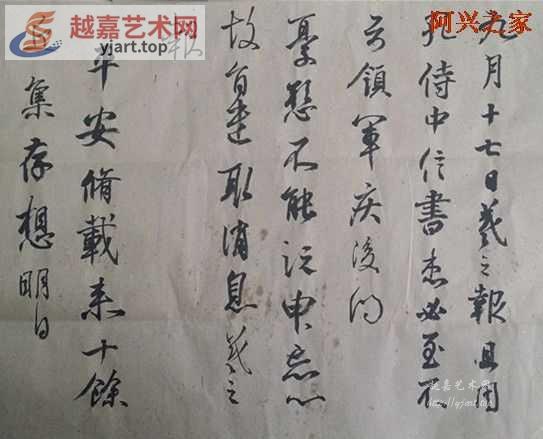 九月十七日羲之報且因
孔侍中信書想必至不
知領軍疾後問
憂懸不能須臾忘心
故旦遣取消息羲之
報
平安脩載来十餘
集存想明日
越嘉艺术网
yjart.top.cn
阿兴之家
越嘉艺术网